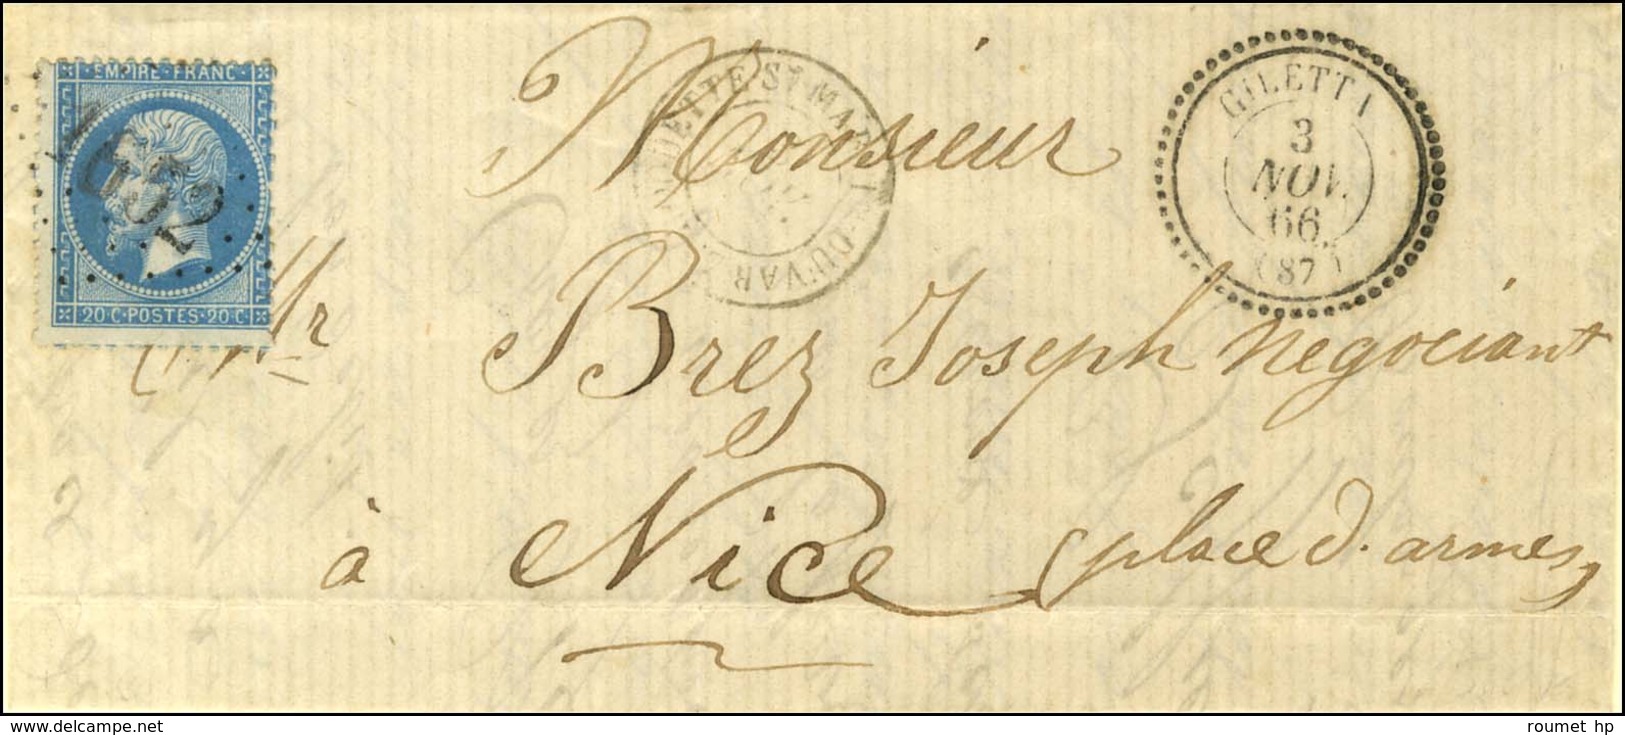 EMPIRE·FRANC
4652
20·C·POSTES·20·C
ROQUETTE ST MARTIN-DU-VAR
GILETTA
3
NOV.
66
(87)
Monsieur
Mr Brez Joseph négociant
à Nice place d'armes
www.delcampe.net
roumet hp